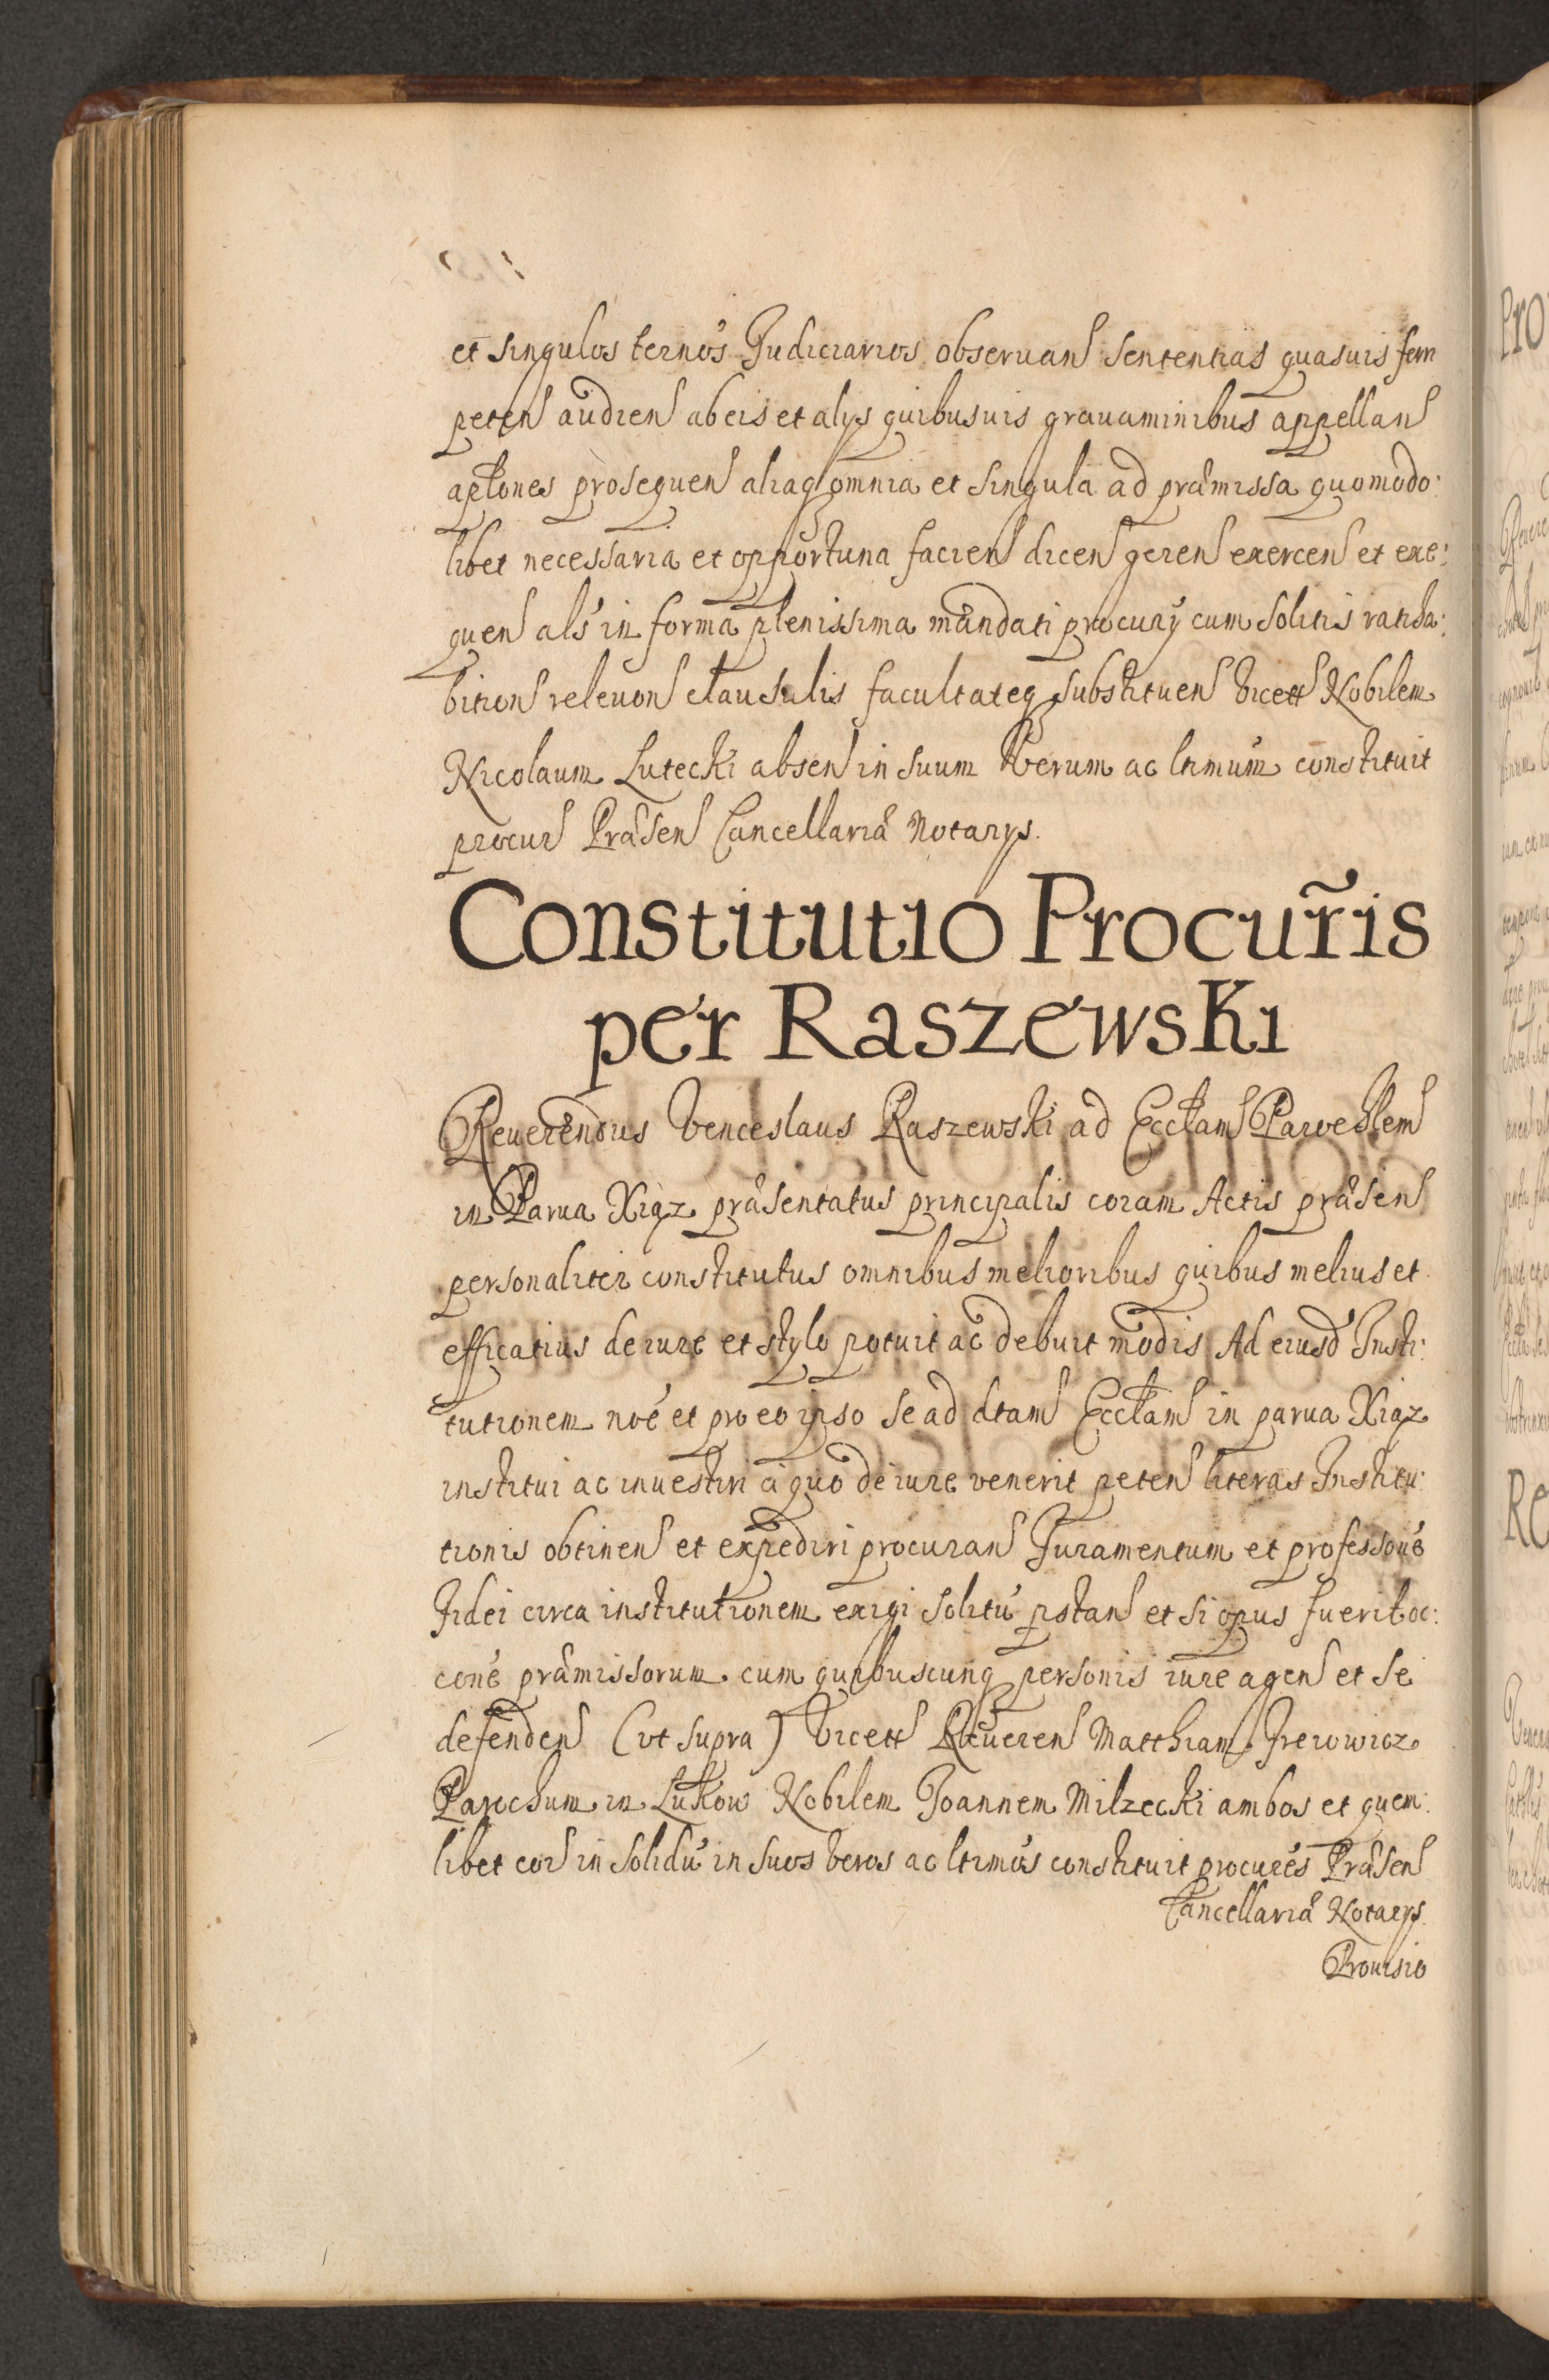 et singulos terños Judiciarios obseruan sententias quasuis ferri
peten audien ab eis et alijs quibusuis grauaminibus appellan
apłones prosequen aliaq omnia et singula ad præmissa quomodo:
libet necessaria et opportuna facien dicen geren exercen et exe:
quen als in forma plenissima mandati procurij cum solitis ratiha:
bition releuon clausulis facultateq substituen vidett Nobilem
Nicolaum Lutecki absen in suum verum ac ltimum constituit
procur Præsen Cancellariæ Notarys.
Constitutio Procur̃is
per Raszewski
Reuerendus Venceslaus Raszewski ad Eccłam Parochlem
in Parua Xiąz præsentatus principalis coram Actis præsen
personaliter constitutus omnibus melioribus quibus melius et
efficatius de iure et stylo potuit ac debuit modis Ad eiusd Insti:
tutionem noé et pro eo ipso se ad dtam Eccłam in parua Xiąz
institui ac inuestiri à quo de iure venerit peten literas Institu:
tionis obtinen et expediri procuran Juramentum et professoné
fidei circa institutionem exigi solitú pstan et si opus fuerit oc:
coné præmissorum cum quibuscunq personis iure agen et se
defenden (vt supra) vidett Reueren Matthiam
Parochum in Lukow Nobilem Joannem Milzecki ambos et quem:
libet eor in solidú in suos veros ac ltimos constituit procurés Præsen
Cancellariæ Notarys.
Prouisio